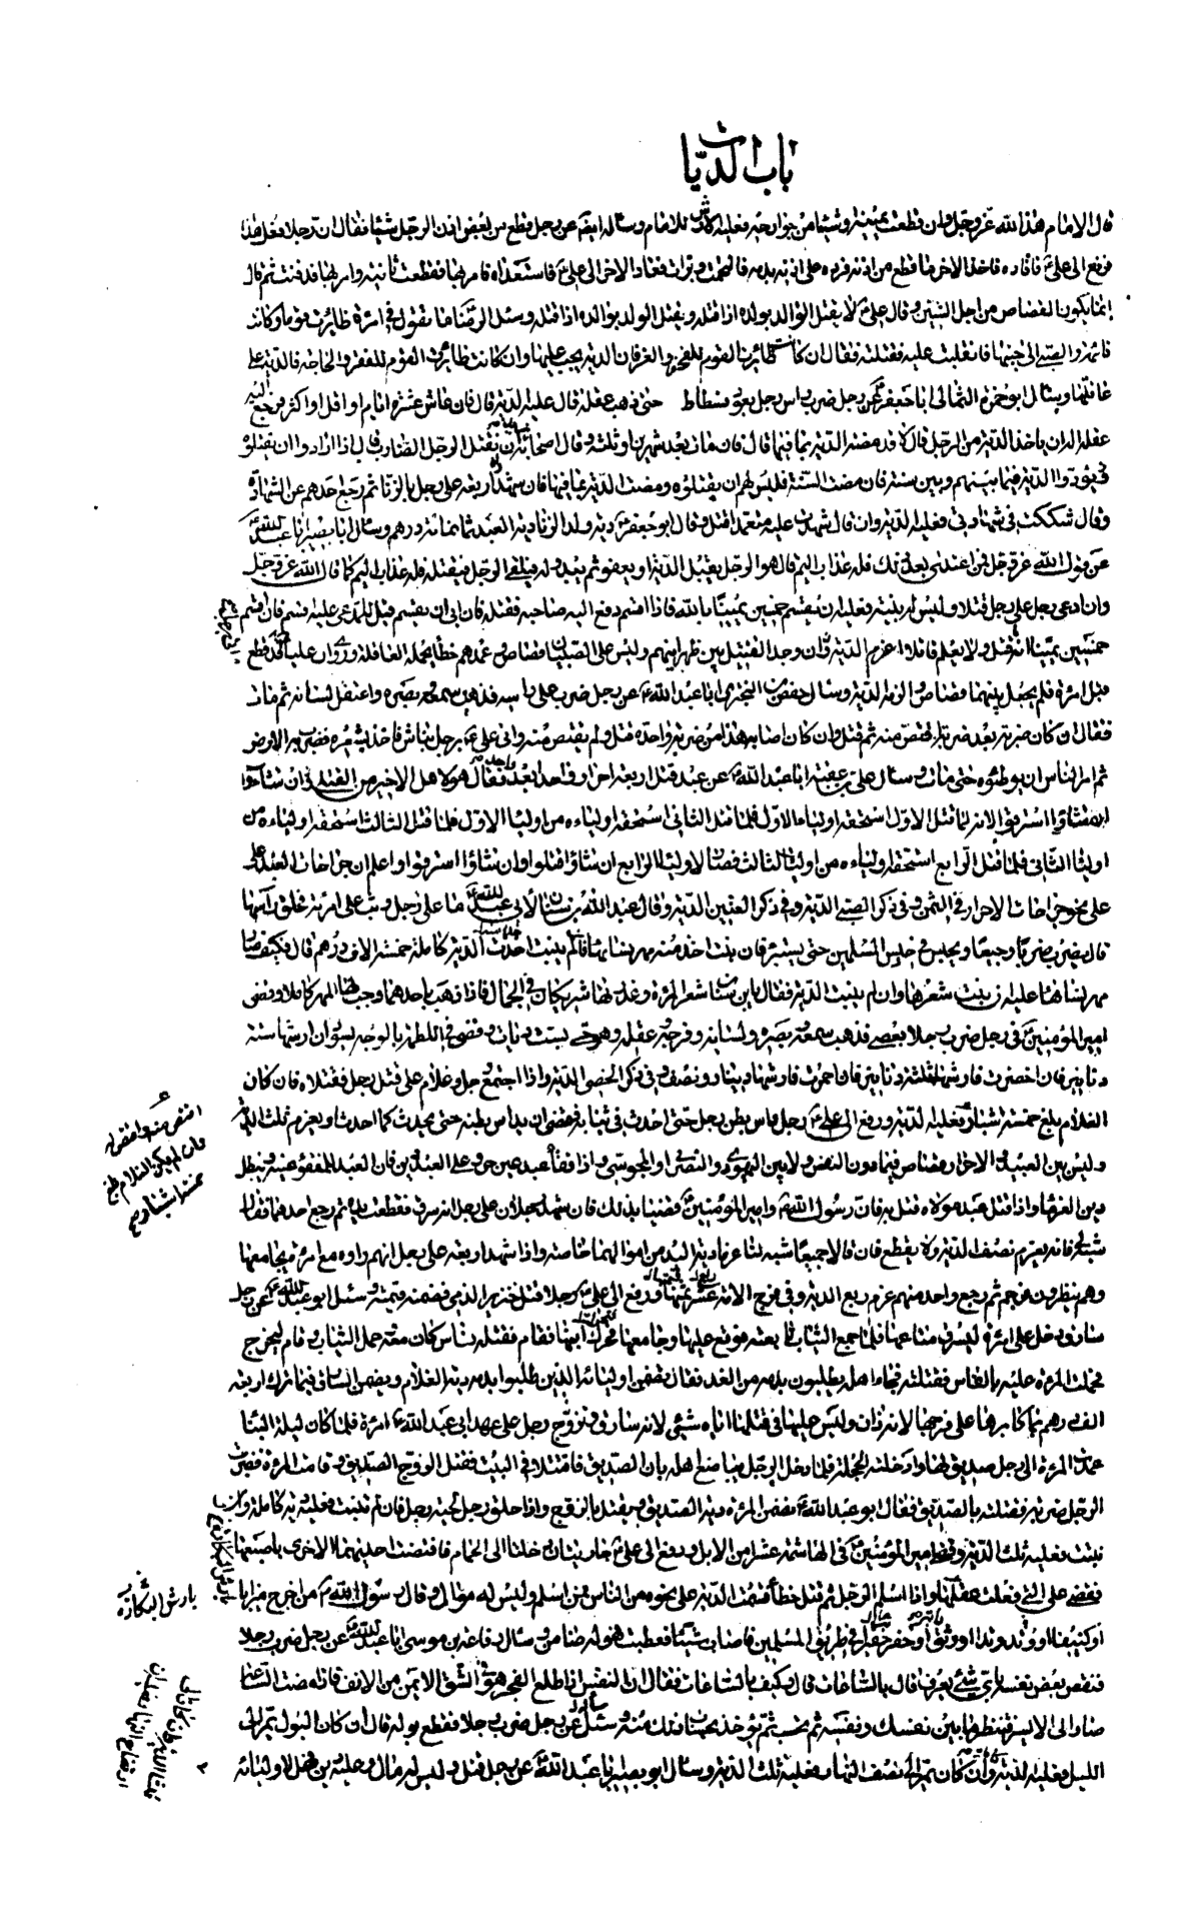 باب الديات
قال الامام هذا الله عز وجل وان قطعت يمينه وشيئا من جوارحه فعليه الارش للامام وساله ايضا عن رجل قطع من بعض اذن الرجل شيئا فقال ان رجلا فعل هذا
فرفع الى علي فاقاده فاخذ الاخر ما قطع من اذنه فرده على اذنه بدمه فالتحمت وبرات فعاد الاخر الى علي فاستعداه فامر بها فقطعت ثانية وامر بها فدفنت ثم قال
انما يكون القصاص من اجل الشين وقال علي لا يقتل الوالد بولده اذا قتله ويقتل الولد بوالده اذا قتله وسئل الرضا ما يقول في امرءة ظائرت قوما وكانت
نائمة والصبي الى جنبها فانقلبت عليه فقتلته فقال ان كانت ظائرت القوم للفخر والعز فان الدية يجب عليها وان كانت ظائرت القوم للفقر والحاجة فالدية على
عاقلتها وسال ابو حمزة الثمالى ابا جعفر عن رجل ضرب راس رجل بعود فسطاط حتى ذهب عقله قال عليه الدية قال فان عاش عشرة ايام او اقل او اكثر فرجع اليه
عقله اله ان ياخذ الدية من الرجل قال لا قد مضت الدية بما فيها قال فان مات بعد شهرين او ثلثة وقال اصحابه نريد ان نقتل الرجل الضارب قال اذا ارادوا ان يقتلوه
فيؤدوا الدية فيما بينهم وبين سنة فان مضت السنة فليس لهم ان يقتلوه ومضت الدية بما فيها فان شهد اربعة على رجل بالزنا ثم رجع احدهم عن الشهادة
وقال شككت في شهادتي فعليه الدية وان قال شهدت عليه متعمدا قتل وقال ابو جعفر دية ولد الزنا دية العبد ثمانمائة درهم وسال ابا بصير ابا عبد الله
عن قول الله عز وجل فمن اعتدى بعد ذلك فله عذاب اليم قال هو الرجل يقبل الدية او يعفو ثم يبدو له فيلقى الرجل فيقتله فله عذاب اليم كما قال الله عز وجل
وان ادعى رجل على رجل قتلا وليس له بينة فعليه ان يقسم خمسين يمينا بالله فاذا اقسم دفع اليه صاحبه فقتله فان ابى ان يقسم قيل للمدعى عليه اقسم فان اقسم
خمسين يمينا انه ما قتل ولا يعلم قاتلا والا غرم الدية وان وجد القتيل بين ظهرانيهم وليس على الصبيان قصاص وعمدهم خطأ يحمله العاقلة وروي ان عليا قطع
قبل امرءة فلم يجعل بينهما قصاص والزمه الدية وسال حفص بن البخترى ابا عبد الله عن رجل ضرب على راسه فذهب سمعه وبصره واعتقل لسانه ثم مات
فقال ان كان ضربه ضربة بعد ضربة اقتص منه ثم قتل وان كان اصابه هذا من ضربة واحدة قتل ولم يقتص منه واتى علي برجل نباش فاخذ بشعره فضرب به الارض
ثم امر الناس ان يوطئوه حتى مات وسال علي بن عقبة ابا عبد الله عن عبد قتل اربعة احرار واحدا بعد واحد فقال هو لاهل الاخير من القتلى ان شاؤا
قتلوه وان شاؤا استرقوه لانه لما قتل الاول استحقه اولياء الاول فلما قتل الثاني استحقه اولياءه من اولياء الاول فلما قتل الثالث استحقه اولياءه من
اولياء الثاني فلما قتل الرابع استحقه اولياءه من اولياء الثالث فصار لاولياء الرابع ان شاؤا قتلوا وان شاؤا استرقوا واعلم ان جراحات العبد
على نحو جراحات الاحرار في الثمن وفي ذكر الصبي الدية وفي ذكر العنين الدية وقال عبد الله بن سنان لابي عبد الله ما على رجل وثب على امرءة فحلق راسها
قال يضرب ضربا وجيعا ويحبس في حبس المسلمين حتى يستبرء فان نبت اخذ منه مهر نسائها فان لم ينبت اخذت الدية كاملة خمسة الاف درهم قال فكيف صار
مهر نسائها عليه ان نبت شعرها وان لم ينبت الدية فقال يابن سنان شعر المرءة وعذرتها شريكان في الجمال فاذا ذهب باحدهما وجب لها المهر كاملا وقضى
امير المؤمنين في رجل ضرب رجلا بعصى فذهب سمعه وبصره ولسانه وفرجه وعقله وهو حى بست ديات وقضى في اللطمة بالوجه يسود ان ارشها ستة
دنانير فان اخضرت فارشها ثلثة دنانير فان احمرت فارشها دينار ونصف وفي ذكر الخصى الدية واذا اجتمع رجل وغلام على قتل رجل فقتلاه فان كان
الغلام بلغ خمسة اشبار فعليه الدية ورفع الى علي رجل داس بطن رجل حتى احدث في ثيابه فقضى ان يداس بطنه حتى يحدث كما احدث او يغرم ثلث الدية
وليس بين العبيد والاحرار قصاص فيما دون النفس ولا بين اليهودي والنصراني والمجوسي واذا فقأ عبد عين حر وعلى العبد دين فان العبد للمفقو عينه ويبطل
دين الغرماء واذا قتل عبد مولاه قتل به فان رسول الله وامير المؤمنين قضيا بذلك فان شهد رجلان على رجل انه سرق فقطعت يده ثم رجع احدهما فقال
شبه لي فانه يغرم نصف الدية ولا يقطع فان قالا جميعا شبه لنا غرما دية اليد من اموالهما خاصة واذا شهد اربعة على رجل انهم راوه مع امرءة يجامعها
وهم ينظرون فرجم ثم رجع واحد منهم غرم ربع الدية وفي فرج الامة عشر ثمنها ورفع الى علي رجلا قتل خنزير الذمي فضمنه قيمته وسئل ابو عبد الله عن رجل
سارق دخل على امرءة ليسرق متاعها فلما جمع الثياب تابعته نفسه فوقع عليها وجامعها فتحرك ابنها فقام فقتله بفاس كان معه ثم حمل الثياب وقام ليخرج
فحملت المرءة عليه بالفاس فقتلته فجاء اهله يطلبون بدمه من الغد فقال يقضى اوليائه الذين طلبوا بدمه دية الغلام ويضمن السارق فيما ترك اربعة
الف درهم بما كابرها على فرجها لانه زان وليس عليها في قتلها اياه شيئ لانه سارق وتزوج رجل على عهد ابي عبد الله امرءة فلما كان ليلة البناء
عمدت المرءة الى رجل صديق لها وادخلته الحجلة فلما دخل الرجل يباضع اهله بان الصديق فاقتتلا في البيت فقتل الزوج الصديق وقامت المرءة فضربت
الرجل ضربة فقتلته بالصديق فقال ابو عبد الله يضمن المرءة دية الصديق ويقتل بالزوج واذا حلق رجل لحية رجل فان لم تنبت فعليه دية كاملة وان
نبتت فعليه ثلث الدية وقضى امير المؤمنين في الهاشمة عشرا من الابل ورفع الى علي جاريتان دخلتا الى الحمام فاقتضت احديهما الاخرى باصبعها
فقضى على التي فعلت عقلها واذا اسلم الرجل ثم قتل خطأ قسمت الدية على نحوه من الناس ممن اسلم وليس له موال وقال رسول الله من اخرج ميزابا
او كنيفا او وتد وتدا او اوثق دابة او حفر بئرا في طريق المسلمين فاصاب شيئا فعطب فهو له ضامن وسال رفاعة بن موسى ابا عبد الله عن رجل ضرب رجلا
فنقص بعض نفسه باي شيئ يعرف قال بالساعات قال وكيف بالساعات فقال ان النفس اذا طلع الفجر هو في الشق الايمن من الانف فاذا مضت الساعة
صار الى الايسر فينظر ما بين نفسك ونفسه ثم يحسب ثم يؤخذ بحساب ذلك منه وسئل عن رجل ضرب رجلا فقطع بوله قال ان كان البول يمر الى
الليل فعليه الدية وان كان يمر الى نصف النهار فعليه ثلث الدية وسال ابو بصير ابا عبد الله عن رجل قتل وليس له مال وعليه دين فهل لاوليائه
اقتص منه واقتص له
فان لم يكن الغلام بلغ
خمسة اشبار
بارش البكارة